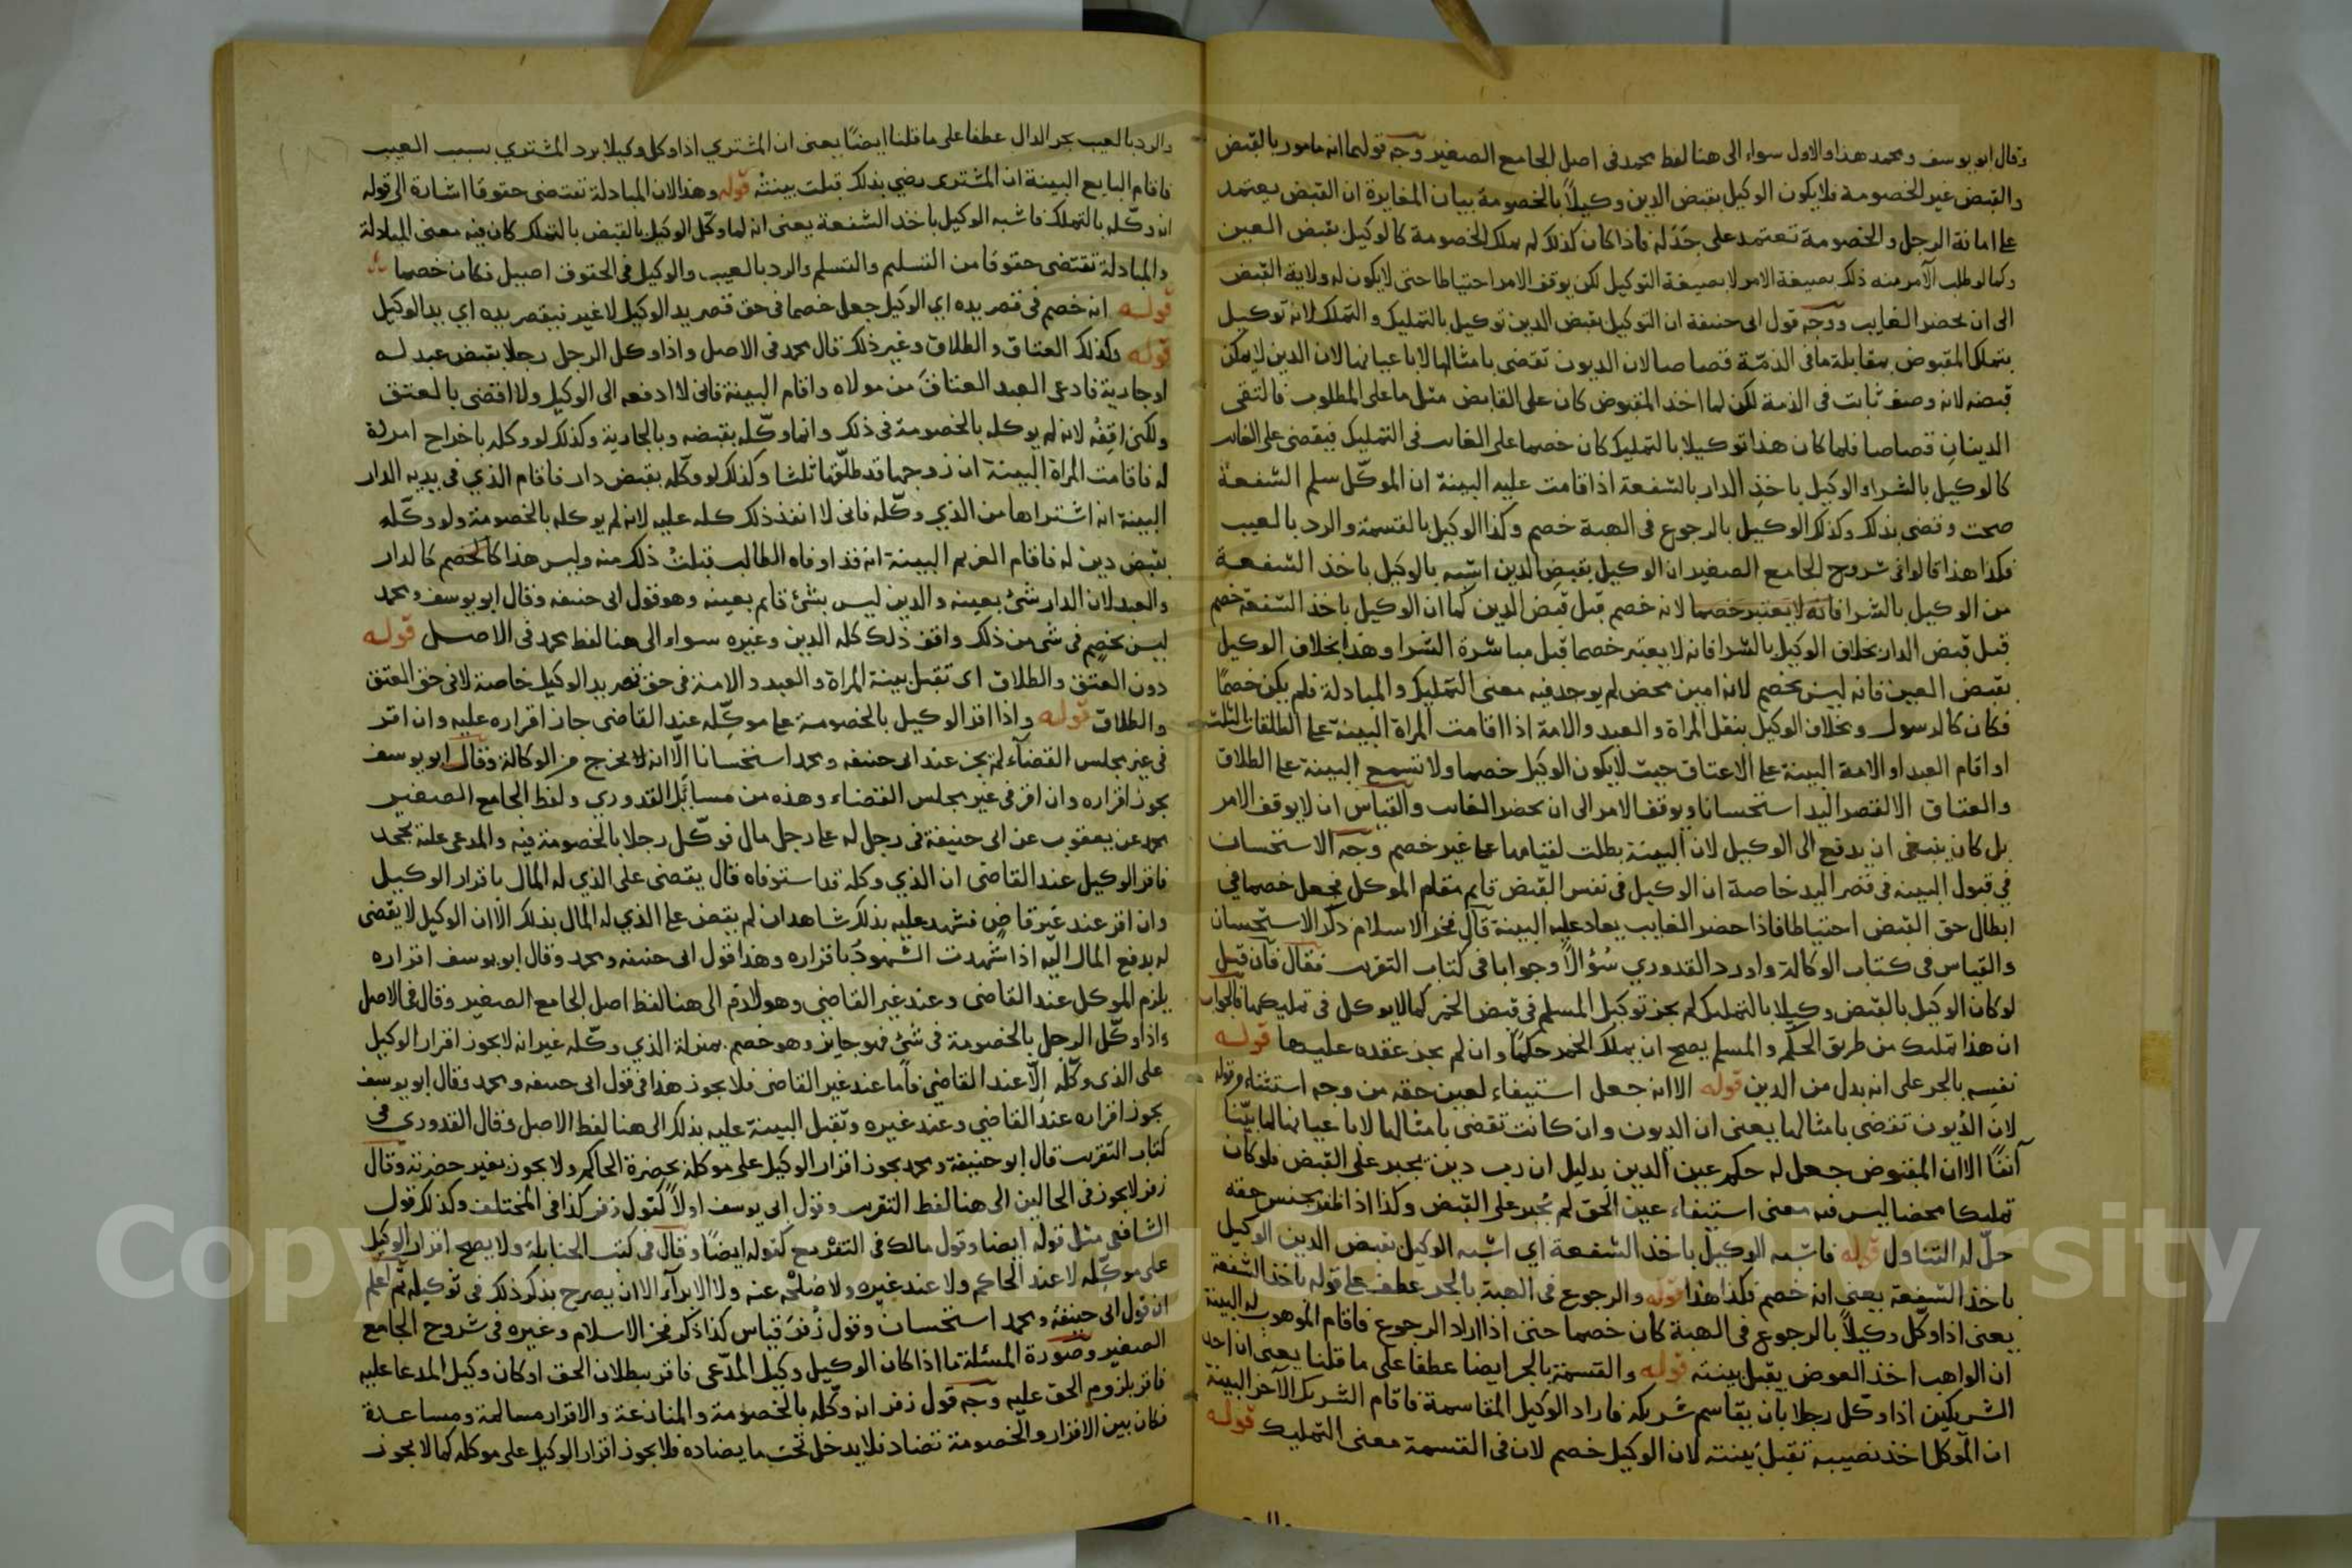 وقال ابو يوسف ومحمد هذا والاول سواء الى هنا لفظ محمد في اصل الجامع الصغير وجه قولهما انه مامور بالقبض
والقبض غير الخصومة فلا يكون الوكيل بقبض الدين وكيلاً بالخصومة بيان المغايرة ان القبض يعتمد
على امانة الرجل والخصومة تعتمد على جَدَله فاذا كان كذلك لم يملك الخصومة كالوكيل بقبض العين
وكما لو طلب الآمر منه ذلك بصيغة الامر لا بصيغة التوكيل لكن يوقف الامر احتياطا حتى لا يكون له ولاية القبض
الى ان يحضر الغايب ووجه قول ابى حنيفة ان التوكيل بقبض الدين توكيل بالتمليك والتملك لانه توكيل
بتملك المقبوض بمقابلة ما في الذمّة قصاصا لان الديون تقضى بامثالها لا باعيانها لان الدين لا يمكن
قبضه لانه وصف ثابت في الذمة لكن لما اخذ المقبوض كان على القابض مثل ما على المطلوب فالتقى
الدينان قصاصا فلما كان هذا توكيلا بالتمليك كان خصما على الغايب في التمليك فيقضى على الغايب
كالوكيل بالشراء والوكيل باخذ الدار بالشفعة اذا قامت عليه البينة ان الموكّل سلم الشفعة
صحت وقضى بذلك وكذلك الوكيل بالرجوع في الهبة خصم وكذا الوكيل بالقسمة والرد بالعيب
فكذا هذا قالوا في شروح الجامع الصغير ان الوكيل بقبض الدين اشبه بالوكيل باخذ الشفعة
من الوكيل بالشرا فانه لا يعتبر خصما لانه خصم قبل قبض الدين كما ان الوكيل باخذ الشفعة خصم
قبل قبض الدار بخلاف الوكيل بالشرا فانه لا يعتبر خصما قبل مباشرة الشرا وهذا بخلاف الوكيل
بقبض العين فانه ليس بخصم لانه امين محض لم يوجد فيه معنى التمليك والمبادلة فلم يكن خصمًا
فكان كالرسول وبخلاف الوكيل بنقل المراة والعبد والامة اذا اقامت المراة البينة على الطلقات الثلث
او اقام العبد او الامة البينة على الاعتاق حيث لا يكون الوكيل خصما ولا تسمع البينة على الطلاق
والعتاق الا لقصر اليد استحسانا ويوقف الامر الى ان يحضر الغايب والقياس ان لا يوقف الامر
بل كان ينبغى ان يدفع الى الوكيل لان البينة بطلت لقيامها على غير خصم وجه الاستحسان
في قبول البينه في قصر اليد خاصة ان الوكيل في نفس القبض قايم مقام الموكل فجعل خصما في
ابطال حق القبض احتياطا فاذا حضر الغايب يعاد عليه البينة قال فخر الاسلام ذكر الاستحسان
والقياس في كتاب الوكالة واورد القدوري سُؤالاً وجوابا في كتاب التقريب فقال فان قيل
لو كان الوكيل بالقبض وكيلا بالتمليك لم يجز توكيل المسلم في قبض الخمر كما لا يوكل في تمليكها فالجواب
ان هذا تمليك من طريق الحكم والمسلم يصح ان يملك الخمر حكمًا وان لم يجز عقده عليها قوله
نفسِه بالجر على انه بدل من الدين قوله الا انه جعل استيفاء لعين حقه من وجه استثناء من قوله
لان الدُيون تقضى بامثالها يعنى ان الديون وان كانت تقضى بامثالها لا باعيانها لما بيّنا
آنفًا الا ان المقبوض جعل له حكم عين الدين بدليل ان رب دين يجبر على القبض فلو كان
تمليكا محضا ليس فيه معنى استيفاء عين الحق لم يُجبر على القبض وكذا اذا ظفر بجنس حقه
حلّ له التناول قوله فاشبه الوكيل باخذ الشفعة اي اشبه الوكيل بقبض الدين الوكيل
باخذ الشفعة يعني انه خصم فكذا هذا قوله والرجوع في الهبة بالجر عطف على قوله باخذ الشفعة
يعنى اذا وكل وكيلاً بالرجوع في الهبة كان خصما حتى اذا اراد الرجوع فاقام الموهوب له البينة
ان الواهب اخذ العوض يقبل بينته قوله والقسمة بالجر ايضا عطفا على ما قلنا يعنى ان احد
الشريكين اذا وكّل رجلا بان يقاسم شريكه فاراد الوكيل المقاسمة فاقام الشريك الآخر البينة
ان الموكل اخذ نصيبه تقبل بينته لان الوكيل خصم لان في القسمة معنى التمليك قوله
والرد بالعيب بجر الدال عطفا على ما قلنا ايضًا يعنى ان المشتري اذا وكل وكيلا برد المشترى بسبب العيب
فاقام البايع البينة ان المشترى رضي بذلك قبلت بينتُه قوله وهذا لان المبادلة تقتضى حقوقا اشارة الى قوله
انه وكّله بالتملك فاشبه الوكيل باخذ الشفعة يعنى انه لما وكّل الوكيل بالقبض بالتملك كان فيه معنى المبادلة
والمبادلة تقتضى حقوقا من التسليم والتسلم والرد بالعيب والوكيل في الحقوق اصيل فكان خصما
قوله انه خصم في قصر يده اي الوكيل جعل خصما في حق قصر يد الوكيل لا غير فيقصر يده اي يد الوكيل
قوله وكذلك العتاق والطلاق وغير ذلك قال محمد في الاصل واذا وكل الرجل رجلا بقبض عبد له
او جارية فادعى العبد العتاقَ من مولاه واقام البينة فانى لا ادفعه الى الوكيل ولا اقضى بالعتق
ولكنى اقِفُه لانه لم يوكله بالخصومة في ذلك وانما وكّله بقبضه وبالجارية وكذلك لو وكله باخراج امراة
له فاقامت المراة البينة ان زوجها قد طلّقها ثلثا وكذلك لو وكّله بقبض دار فاقام الذي في يديه الدار
البينة انه اشتراها من الذي وكّله فانى لا انفذ ذلك كله عليه لانه لم يوكله بالخصومة ولو وكّله
بقبض دين له فاقام الغريم البينة انه قد اوفاه الطالب قبلتُ ذلك منه وليس هذا كالخصم كالدار
والعبد لان الدار شئ بعينه والدين ليس بشئ قايم بعينه وهو قول ابى حنيفه وقال ابو يوسف ومحمد
ليس بخصمٍ في شى من ذلك واقف ذلك كله الدين وغيره سواء الى هنا لفظ محمد في الاصل قوله
دون العتق والطلاق اى تقبل بينة المراة والعبد والامة في حق قصر يد الوكيل خاصة لا في حق العتق
والطلاق قوله واذا اقر الوكيل بالخصومة على موكِّله عند القاضى جاز اقراره عليه وان اقر
في غير مجلس القضآء لم يجز عند ابى حنيفه ومحمد استحسانا الّا انه لا يخرج من الوكالة وقال ابو يوسف
يجوز اقراره وان اقر في غير مجلس القضاء وهذه من مسائل القدوري ولفظ الجامع الصغير
محمد عن يعقوب عن ابى حنيفة في رجل له على رجل مال فوكّل رجلا بالخصومة فيه والمدعى عليه يجحد
فاقر الوكيل عند القاضى ان الذي وكله قد استوفاه قال يقضى على الذي له المال باقرار الوكيل
وان اقر عند غير قاضٍ فشهد عليه بذلك شاهدان لم يقض على الذي له المال بذلك الّا ان الوكيل لا يقضى
له بدفع المال اليّه اذا شهدت الشهودُ باقراره وهذا قول ابى حنيفه ومحمد وقال ابو يوسف اقراره
يلزم الموكل عند القاضى وعند غير القاضي وهو لازم الى هنا لفظ اصل الجامع الصغير وقال في الاصل
واذا وكّل الرجل بالخصومة في شئ فهو جايز وهو خصم بمنزلة الذي وكّله غير انه لا يجوز اقرار الوكيل
على الذى وكّله إلّا عند القاضي فأما عند غير القاضى فلا يجوز هذا في قول ابى حنيفه ومحمد وقال ابو يوسف
يجوز اقراره عند القاضي وعند غيره وتقبل البينة عليه بذلك الى هنا لفظ الاصل وقال القدوري في
كتاب التقريب قال ابو حنيفة ومحمد يجوز اقرار الوكيل على موكله بحضرة الحاكم ولا يجوز بغير حضرته وقال
زفر لا يجوز في الحالين الى هنا لفظ التقريب وقول ابى يوسف اولاً كقول زفر كذا في المختلف وكذلك قول
الشافعى مثل قوله ايضا وقول مالك في التفريع كقوله ايضًا وقال في كتب الحنابلة ولا يصح اقرار الوكيل
على موكّله لا عند الحاكم ولا عند غيره ولا صُلحْه عنه ولا الابرآء الا ان يصرح بذكر ذلك في توكيله ثم اعلم
ان قول ابى حنيفة ومحمد استحسان وقول زُفَر قياس كذا ذكر فخر الاسلام وغيره في شروح الجامع
الصغير وصورة المسئلة ما اذا كان الوكيل وكيل المدّعى فاقر ببطلان الحق او كان وكيل المدعا عليه
فاقر بلزوم الحق عليه وجه قول زفر انه وكّله بالخصومة والمنازعة والاقرار مسالمة ومساعدة
فكان بين الاقرار والخصومة تضاد فلا يدخل تحت ما يضاده فلا يجوز اقرار الوكيل على موكله كما لا يجوز
Copyright © King Saud University